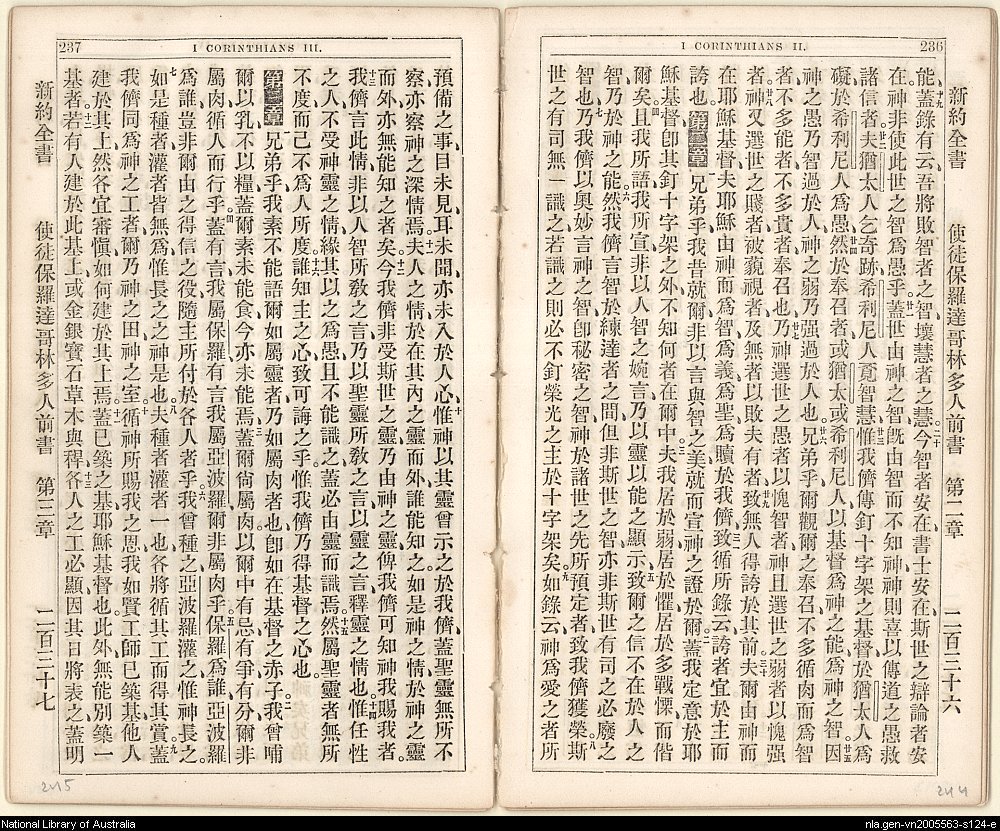 236
I CORINTHIANS II.
新約全書 使徒保羅達哥林多人前書 第二章 二百三十六
能、蓋錄有云、吾將敗智者之智、壞慧者之慧、今智者安在、書士安在、斯世之辯論者安
在、神非使此世之智爲愚乎、蓋世由神之智、旣由智而不知神、神則喜以傳道之愚救
諸信者、夫猶太人乞奇跡、希利尼人覓智慧、惟我儕傳釘十字架之基督、於猶太人爲
礙、於希利尼人爲愚、然於奉召者、或猶太或希利尼人、以基督爲神之能、爲神之智、因
神之愚乃智過於人、神之弱乃强過於人也、兄弟乎、爾觀爾之奉召、不多循肉而爲智
者、不多能者、不多貴者奉召也、乃神選世之愚者以愧智者、神且選世之弱者以愧强
者、神又選世之賤者、被藐視者、及無者、以敗夫有者、致無人得誇於其前、夫爾由神而
在耶穌基督、夫耶穌由神而爲智爲義爲聖爲贖於我儕、致循所錄云、誇者宜於主而
誇也、第二章 兄弟乎、我昔就爾、非以言與智之美就而言神之證於爾、蓋我定意於耶
穌基督卽其釘十字架之外、不知何者在爾中、夫我居於弱居於懼居於多戰慄而偕
爾矣、且我所語我所宣、非以人智之婉言、乃以靈以能之顯示、致爾之信不在於人之
智、乃於神之能、然我儕言智於練達者之間、但非斯世之智、亦非斯世有司之必廢之
智也、乃我儕以奧妙言神之智、卽秘密之智、神於諸世之先所預定者、致我儕獲榮、斯
世之有司無一識之、若識之則必不釘榮光之主於十字架矣、如錄云、神爲愛之者所
244
237
I CORINTHIANS III.
預備之事、目未見、耳未聞、亦未入於人心、惟神以其靈曾示之於我儕、蓋聖靈無所不
察、亦察神之深情焉、夫人之情於在其內之靈而外、誰能知之、如是神之情、於神之靈
而外、亦無能知之者矣、今我儕非受斯世之靈、乃由神之靈、俾我儕可知神我賜我者、
我儕言此情、非以人智所敎之言、乃以聖靈所敎之言、以靈之言釋靈之情也、惟任性
之人、不受神靈之情、緣其以之爲愚、且不能識之、蓋必由靈而識焉、然屬聖靈者無所
不度、而己不爲人所度、誰知主之心、致可誨之乎、惟我儕乃得基督之心也、
第三章 兄弟乎、我素不能語爾如屬靈者、乃如屬肉者也、卽如在基督之赤子、我曾哺
爾以乳、不以糧、蓋爾素未能食、今亦未能焉、蓋爾尙屬肉、以爾中有忌有爭有分、爾非
屬肉循人而行乎、蓋有言我屬保羅、有言我屬亞波羅、爾非屬肉乎、保羅爲誰、亞波羅
爲誰、豈非爾由之得信之役、隨主所付於各人者乎、我曾種之、亞波羅灌之、惟神長之、
如是種者灌者皆無爲、惟長之之神是也、夫種者灌者一也、各將循其工而得其賞、蓋
我儕同爲神之工者、爾乃神之田、神之室、循神所賜我之恩、我如賢工師已築基、他人
建於其上、然各宜審愼如何建於其上焉、蓋已築之基、耶穌基督也、此外無能別築一
基者、若有人建於此基上、或金銀寶石草木與稗、各人之工必顯、因其日將表之、蓋明
新約全書 使徒保羅達哥林多人前書 第三章 二百三十七
245
National Library of Australia
nla.gen-vn2005563-s124-e